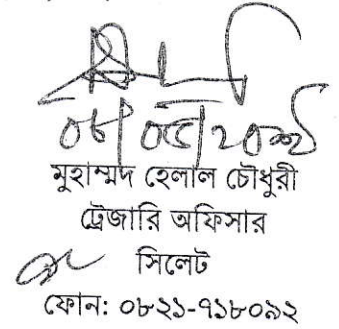 মুহাম্মদ হেলাল চৌধুরী
ট্রেজারি অফিসার
সিলেট
ফোন: ০৮২১-৭১৮০৯২